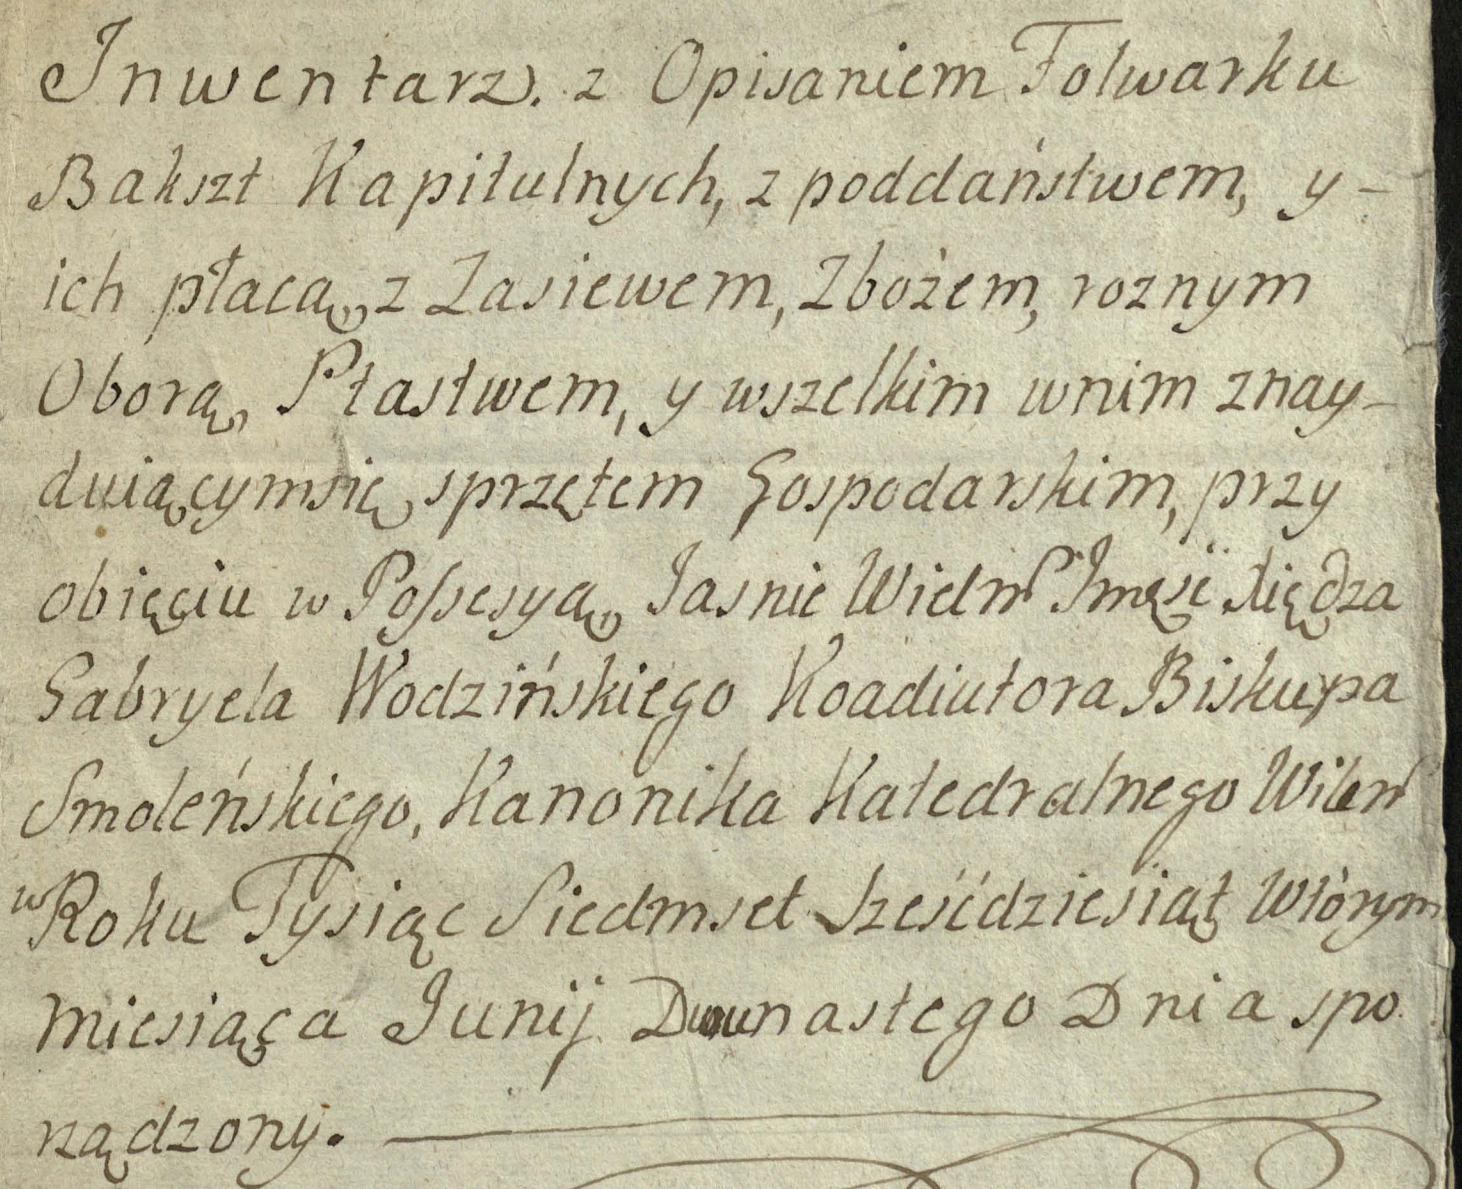 Inwentarz. z Opisaniem Folwarku
Bakszt Kapitulnych, z poddaństwem, y-
ich płacą, z Zasiewem, Zbożem, roznym
Oborą, Ptastwem, y wszelkim wnim znay-
duiącymsię sprzętem Gospodarskim, przy
obięciu w Possesyą, Jasnie Wielm Jmęsc Xiędza
Gabryela Wodzińskiego Koadiutora Biskupa
Smoleńskiego, Kanonika Katedralnego Wilen
w Roku Tysiąc Siedmset Sześćdziesiąt Wtórym
Miesiąca Junij Dwunastego Dnia spo
rządzony.